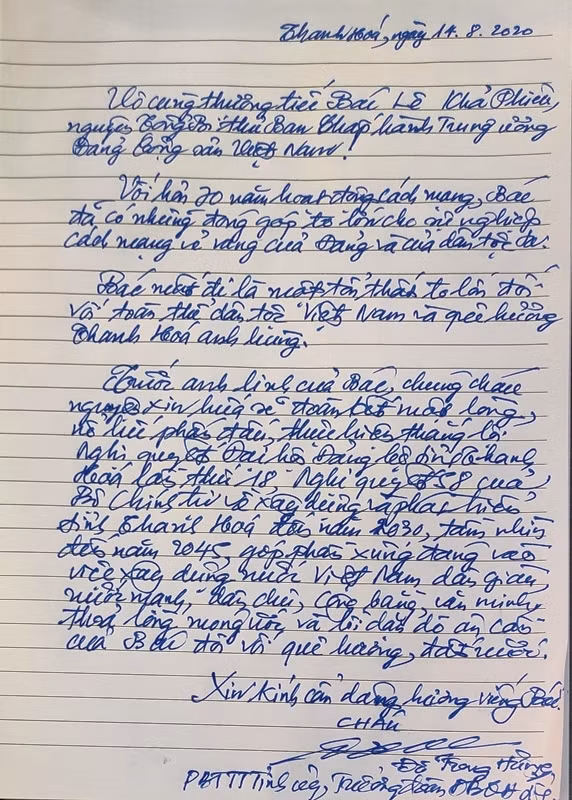 Thanh Hoá, ngày 14.8.2020
Vô cùng thương tiếc Bác Lê Khả Phiêu,
nguyên Tổng Bí thư Ban Chấp hành Trung ương
Đảng Cộng sản Việt Nam!
Với hơn 70 năm hoạt động cách mạng, Bác
đã có những đóng góp to lớn cho sự nghiệp
cách mạng vẻ vang của Đảng và của dân tộc ta.
Bác mất đi là một tổn thất to lớn đối
với toàn thể dân tộc Việt Nam và quê hương
Thanh Hoá anh hùng.
Trước anh linh của Bác, chúng cháu
nguyện xin hứa sẽ đoàn kết một lòng,
nỗ lực phấn đấu, thực hiện thắng lợi
Nghị quyết Đại hội Đảng bộ tỉnh Thanh
Hoá lần thứ 18, Nghị quyết 58 của
Bộ Chính trị về xây dựng và phát triển
tỉnh Thanh Hoá đến năm 2030, tầm nhìn
đến năm 2045, góp phần xứng đáng vào
việc xây dựng nước Việt Nam dân giàu,
nước mạnh, dân chủ, công bằng, văn minh,
thoả lòng mong ước và lời dặn dò ân cần
của Bác đối với quê hương, đất nước.
Xin kính cẩn dâng hương viếng Bác!
CHÁU
Đỗ Trọng Hưng,
PBTTT Tỉnh uỷ, Trưởng đoàn ĐBQH tỉnh